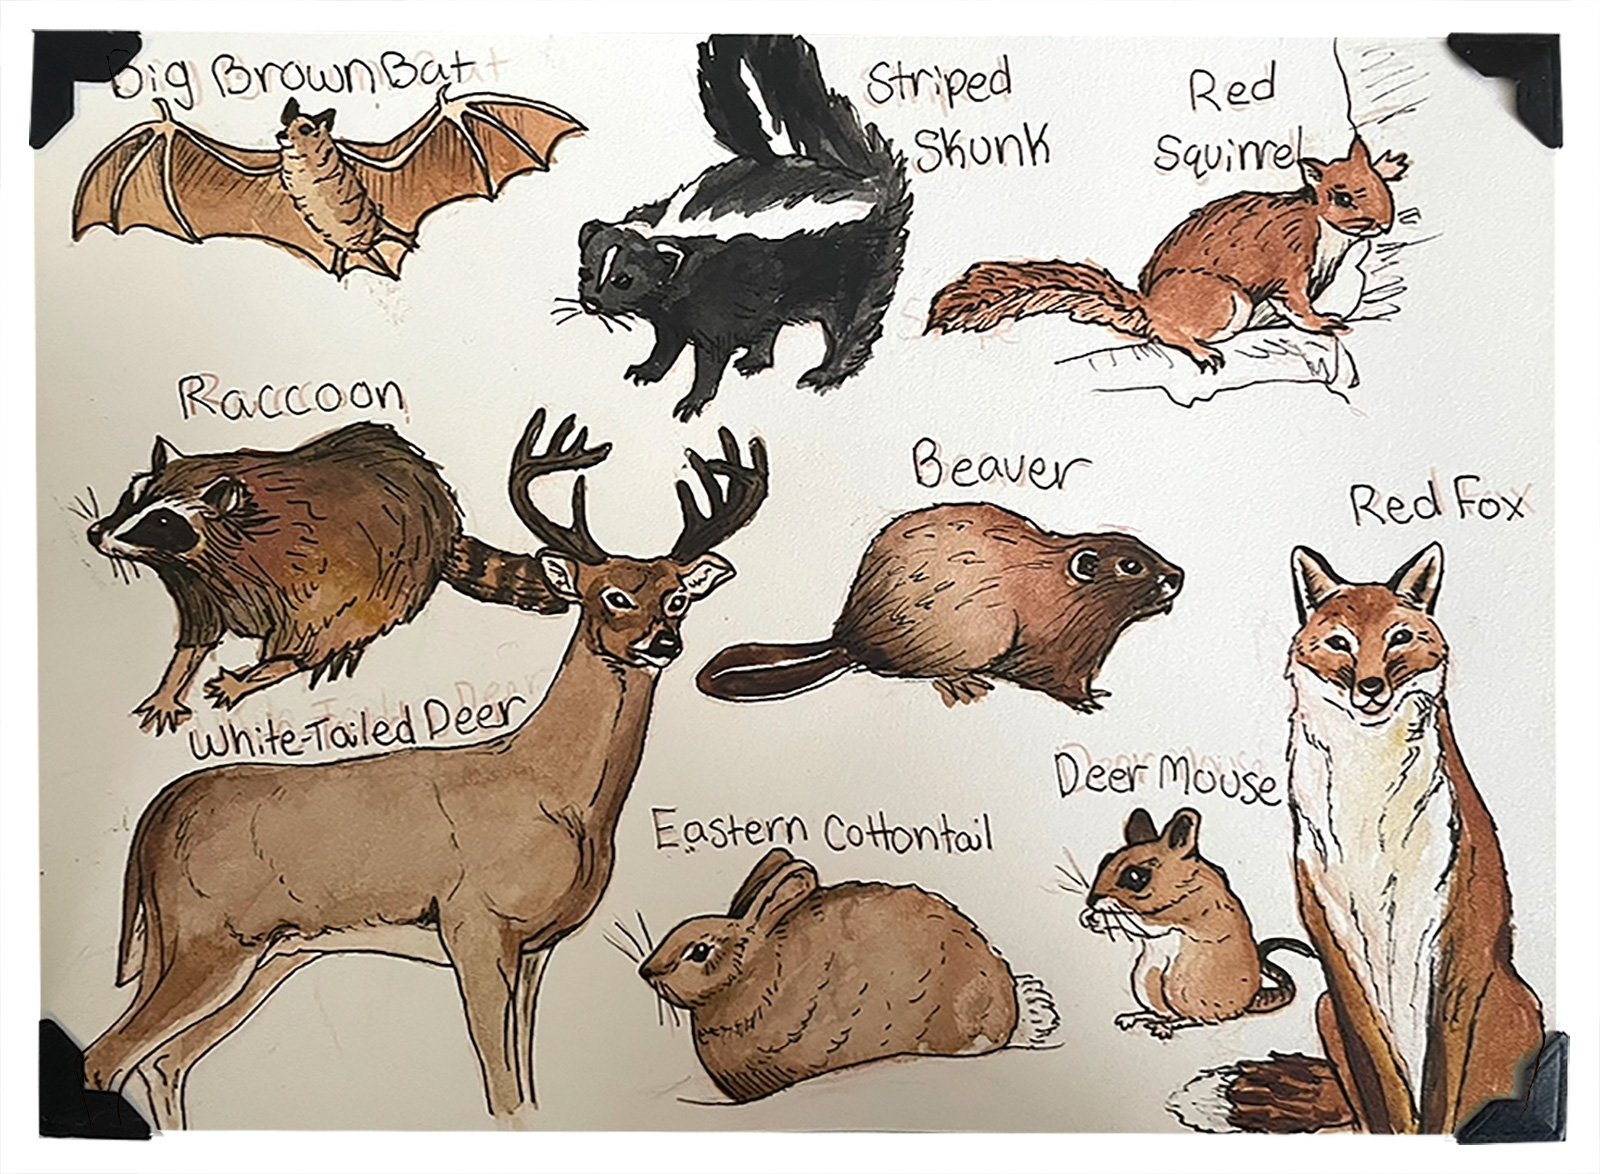 Big Brown Bat
Striped
Skunk
Red
Squirrel
Raccoon
Beaver
Red Fox
White-Tailed Deer
Deer Mouse
Eastern Cottontail